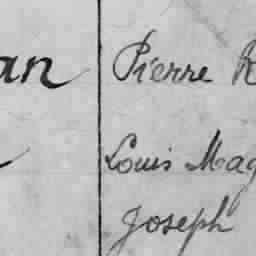 an Pierre R
Louis Mag
Joseph